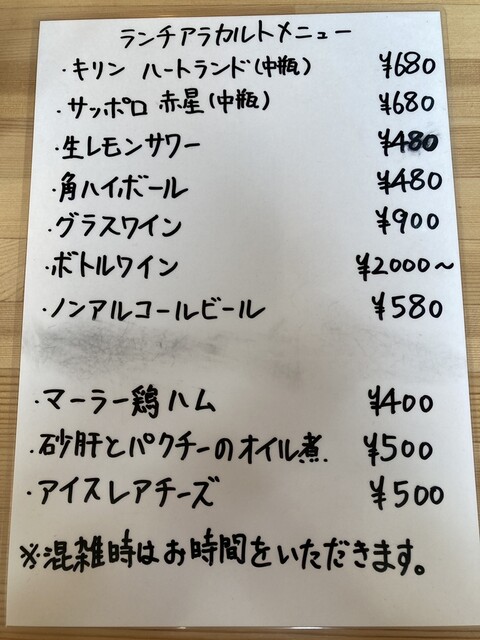 ランチアラカルトメニュー
・キリン ハートランド(中瓶) ¥680
・サッポロ 赤星(中瓶) ¥680
・生レモンサワー ¥480
・角ハイボール ¥480
・グラスワイン ¥900
・ボトルワイン ¥2000〜
・ノンアルコールビール ¥580
・マーラー鶏ハム ¥400
・砂肝とパクチーのオイル煮. ¥500
・アイスレアチーズ ¥500
※混雑時はお時間をいただきます。